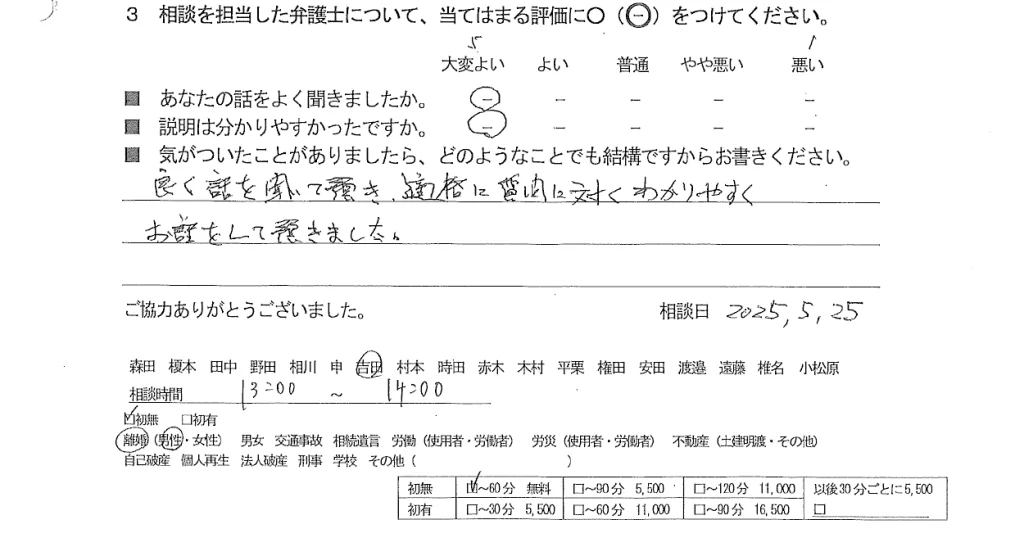 3 相談を担当した弁護士について、当てはまる評価に○（㊀）をつけてください。
5 1
大変よい よい 普通 やや悪い 悪い
■ あなたの話をよく聞きましたか。 － － － － －
■ 説明は分かりやすかったですか。 － － － － －
■ 気がついたことがありましたら、どのようなことでも結構ですからお書きください。
良く話を聞いて頂き、適格に質問に対しわかりやすく
お話をして頂きました。
ご協力ありがとうございました。 相談日 2025,5,25
森田 榎本 田中 野田 相川 申 吉田 村本 時田 赤木 木村 平栗 権田 安田 渡邉 遠藤 椎名 小松原
相談時間 13:00 ～ 14:00
☑初無 □初有
離婚（男性・女性） 男女 交通事故 相続遺言 労働（使用者・労働者） 労災（使用者・労働者） 不動産（土建明渡・その他）
自己破産 個人再生 法人破産 刑事 学校 その他（ ）
初無 ☑～60分 無料 □～90分 5,500 □～120分 11,000 以後30分ごとに5,500
初有 □～30分 5,500 □～60分 11,000 □～90分 16,500 □